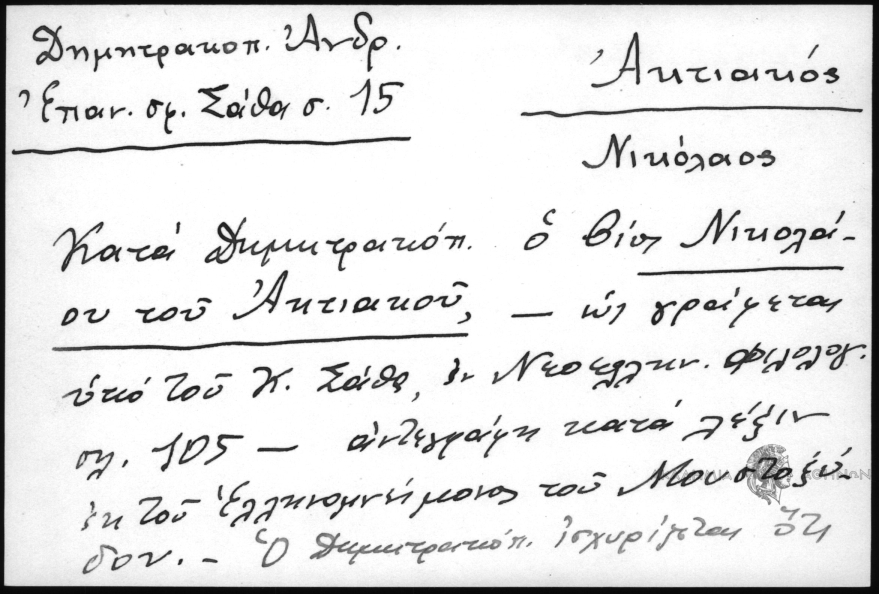 Δημητρακοπ. Ἀνδρ.
Ἐπαν. σφ. Σάθα σ. 15
Ἀκτιακός
Νικόλαος
Κατά Δημητρακόπ. ὁ βίος Νικολά-
ου τοῦ Ἀκτιακοῦ, — ὡς γράφεται
ὑπό τοῦ Κ. Σάθα, ἐν Νεοελλην. Φιλολογ.
σελ. 105 — ἀντεγράφη κατά λέξιν
ἐκ τοῦ Ἑλληνομνήμονος τοῦ Μουστοξύ-
δου. – Ὁ Δημητρακόπ. ἰσχυρίζεται ὅτι